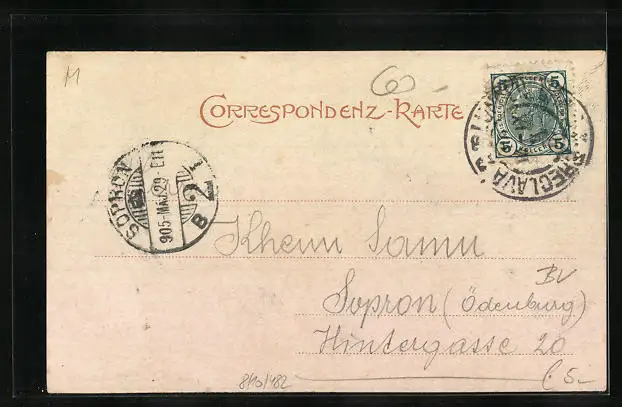 M
60
CORRESPONDENZ-KARTE
5 5
5 5
BRECLAVA
SOPRON
905 MÁJ. 29. E11
B 2
Khenn Samu
BV
Sopron (Ödenburg)
Hintergasse 20
8/10/482